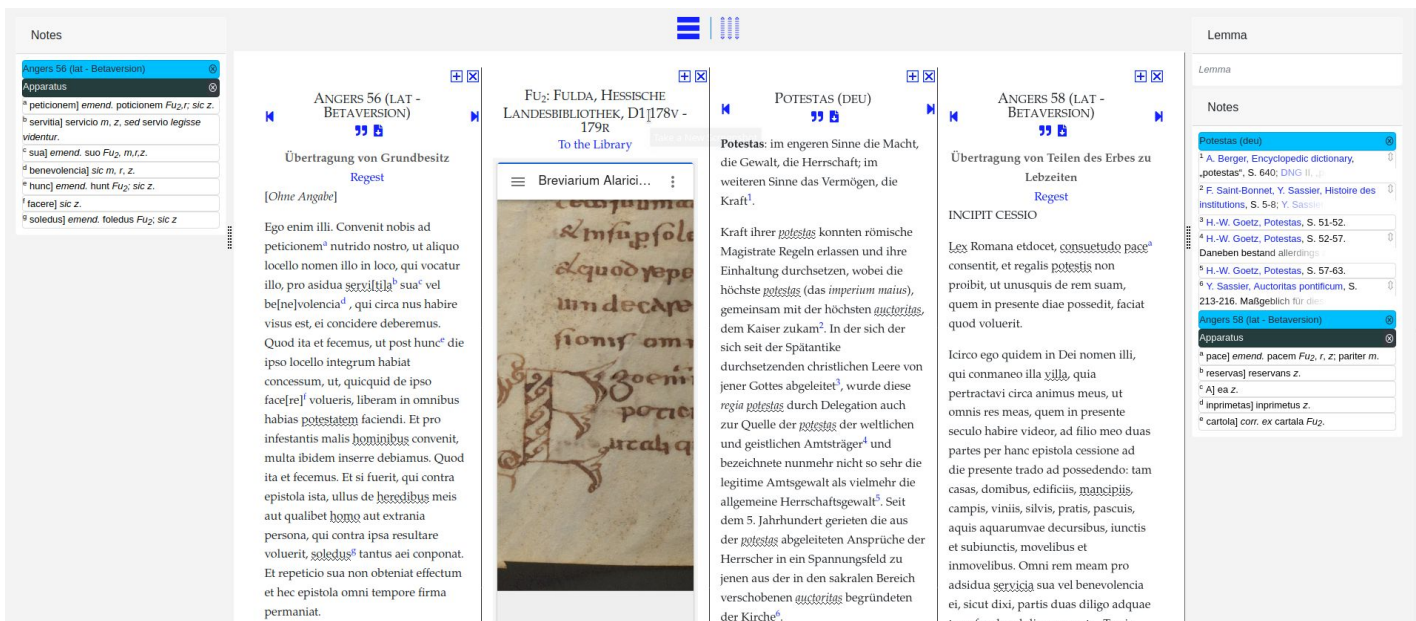 Notes
Angers 56 (lat - Betaversion)
Apparatus
a peticionem] emend. poticionem Fu2,r; sic z.
b servitia] servicio m, z, sed servio legisse
videntur.
c sua] emend. suo Fu2, m,r,z.
d benevolencia] sic m, r, z.
e hunc] emend. hunt Fu2; sic z.
f facere] sic z.
g soledus] emend. foledus Fu2; sic z
ANGERS 56 (LAT -
BETAVERSION)
Übertragung von Grundbesitz
Regest
[Ohne Angabe]
Ego enim illi. Convenit nobis ad
peticionema nutrido nostro, ut aliquo
locello nomen illo in loco, qui vocatur
illo, pro asidua servi[ti]ab suac vel
be[ne]volenciad , qui circa nus habire
visus est, ei concidere deberemus.
Quod ita et fecemus, ut post hunce die
ipso locello integrum habiat
concessum, ut, quicquid de ipso
face[re]f volueris, liberam in omnibus
habias potestatem faciendi. Et pro
infestantis malis hominibus convenit,
multa ibidem inserre debiamus. Quod
ita et fecemus. Et si fuerit, qui contra
epistola ista, ullus de heredibus meis
aut qualibet homo aut extrania
persona, qui contra ipsa resultare
voluerit, soledusg tantus aei conponat.
Et repeticio sua non obteniat effectum
et hec epistola omni tempore firma
permaniat.
FU2: FULDA, HESSISCHE
LANDESBIBLIOTHEK, D1 178V -
179R
To the Library
Breviarium Alarici...
POTESTAS (DEU)
Potestas: im engeren Sinne die Macht,
die Gewalt, die Herrschaft; im
weiteren Sinne das Vermögen, die
Kraft1.
Kraft ihrer potestas konnten römische
Magistrate Regeln erlassen und ihre
Einhaltung durchsetzen, wobei die
höchste potestas (das imperium maius),
gemeinsam mit der höchsten auctoritas,
dem Kaiser zukam2. In der sich der
sich seit der Spätantike
durchsetzenden christlichen Leere von
jener Gottes abgeleitet3, wurde diese
regia potestas durch Delegation auch
zur Quelle der potestas der weltlichen
und geistlichen Amtsträger4 und
bezeichnete nunmehr nicht so sehr die
legitime Amtsgewalt als vielmehr die
allgemeine Herrschaftsgewalt5. Seit
dem 5. Jahrhundert gerieten die aus
der potestas abgeleiteten Ansprüche der
Herrscher in ein Spannungsfeld zu
jenen aus der in den sakralen Bereich
verschobenen auctoritas begründeten
der Kirche6.
ANGERS 58 (LAT -
BETAVERSION)
Übertragung von Teilen des Erbes zu
Lebzeiten
Regest
INCIPIT CESSIO
Lex Romana etdocet, consuetudo pacea
consentit, et regalis potestis non
proibit, ut unusquis de rem suam,
quem in presente diae possedit, faciat
quod voluerit.
Icirco ego quidem in Dei nomen illi,
qui conmaneo illa villa, quia
pertractavi circa animus meus, ut
omnis res meas, quem in presente
seculo habire videor, ad filio meo duas
partes per hanc epistola cessione ad
die presente trado ad possedendo: tam
casas, domibus, edificiis, mancipiis,
campis, viniis, silvis, pratis, pascuis,
aquis aquarumvae decursibus, iunctis
et subiunctis, movelibus et
inmovelibus. Omni rem meam pro
adsidua servicia sua vel benevolencia
ei, sicut dixi, partis duas diligo adquae
Lemma
Lemma
Notes
Potestas (deu)
1 A. Berger, Encyclopedic dictionary,
„potestas“, S. 640; DNG II,
2 F. Saint-Bonnet, Y. Sassier, Histoire des
institutions, S. 5-8; Y. Sassier
3 H.-W. Goetz, Potestas, S. 51-52.
4 H.-W. Goetz, Potestas, S. 52-57.
Daneben bestand allerdings
5 H.-W. Goetz, Potestas, S. 57-63.
6 Y. Sassier, Auctoritas pontificum, S.
213-216. Maßgeblich für
Angers 58 (lat - Betaversion)
Apparatus
a pace] emend. pacem Fu2, r, z; pariter m.
b reservas] reservans z.
c A] ea z.
d inprimetas] inprimetus z.
e cartola] corr. ex cartala Fu2.